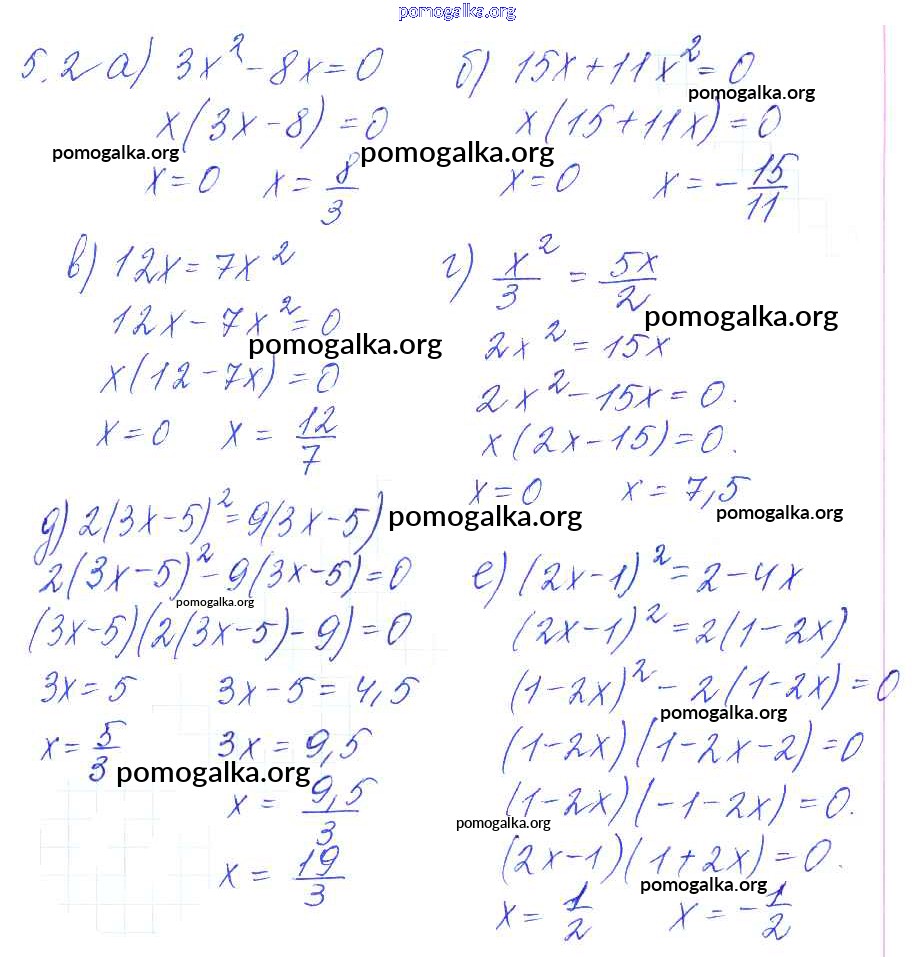 pomogalka.org
5.2 а) 3x² - 8x = 0
x(3x - 8) = 0
pomogalka.org
pomogalka.org
x = 0 x = 8/3
б) 15x + 11x² = 0
pomogalka.org
x(15 + 11x) = 0
x = 0 x = -15/11
в) 12x = 7x²
12x - 7x² = 0
pomogalka.org
x(12 - 7x) = 0
x = 0 x = 12/7
г) x²/3 = 5x/2
pomogalka.org
2x² = 15x
2x² - 15x = 0.
x(2x - 15) = 0.
x = 0 x = 7,5
pomogalka.org
д) 2(3x - 5)² = 9(3x - 5)
pomogalka.org
2(3x - 5)² - 9(3x - 5) = 0
pomogalka.org
(3x - 5)(2(3x - 5) - 9) = 0
3x = 5 3x - 5 = 4,5
x = 5/3 3x = 9,5
pomogalka.org
x = 9,5/3
x = 19/3
е) (2x - 1)² = 2 - 4x
(2x - 1)² = 2(1 - 2x)
(1 - 2x)² - 2(1 - 2x) = 0
pomogalka.org
(1 - 2x)(1 - 2x - 2) = 0
(1 - 2x)(-1 - 2x) = 0.
pomogalka.org
(2x - 1)(1 + 2x) = 0.
pomogalka.org
x = 1/2 x = -1/2